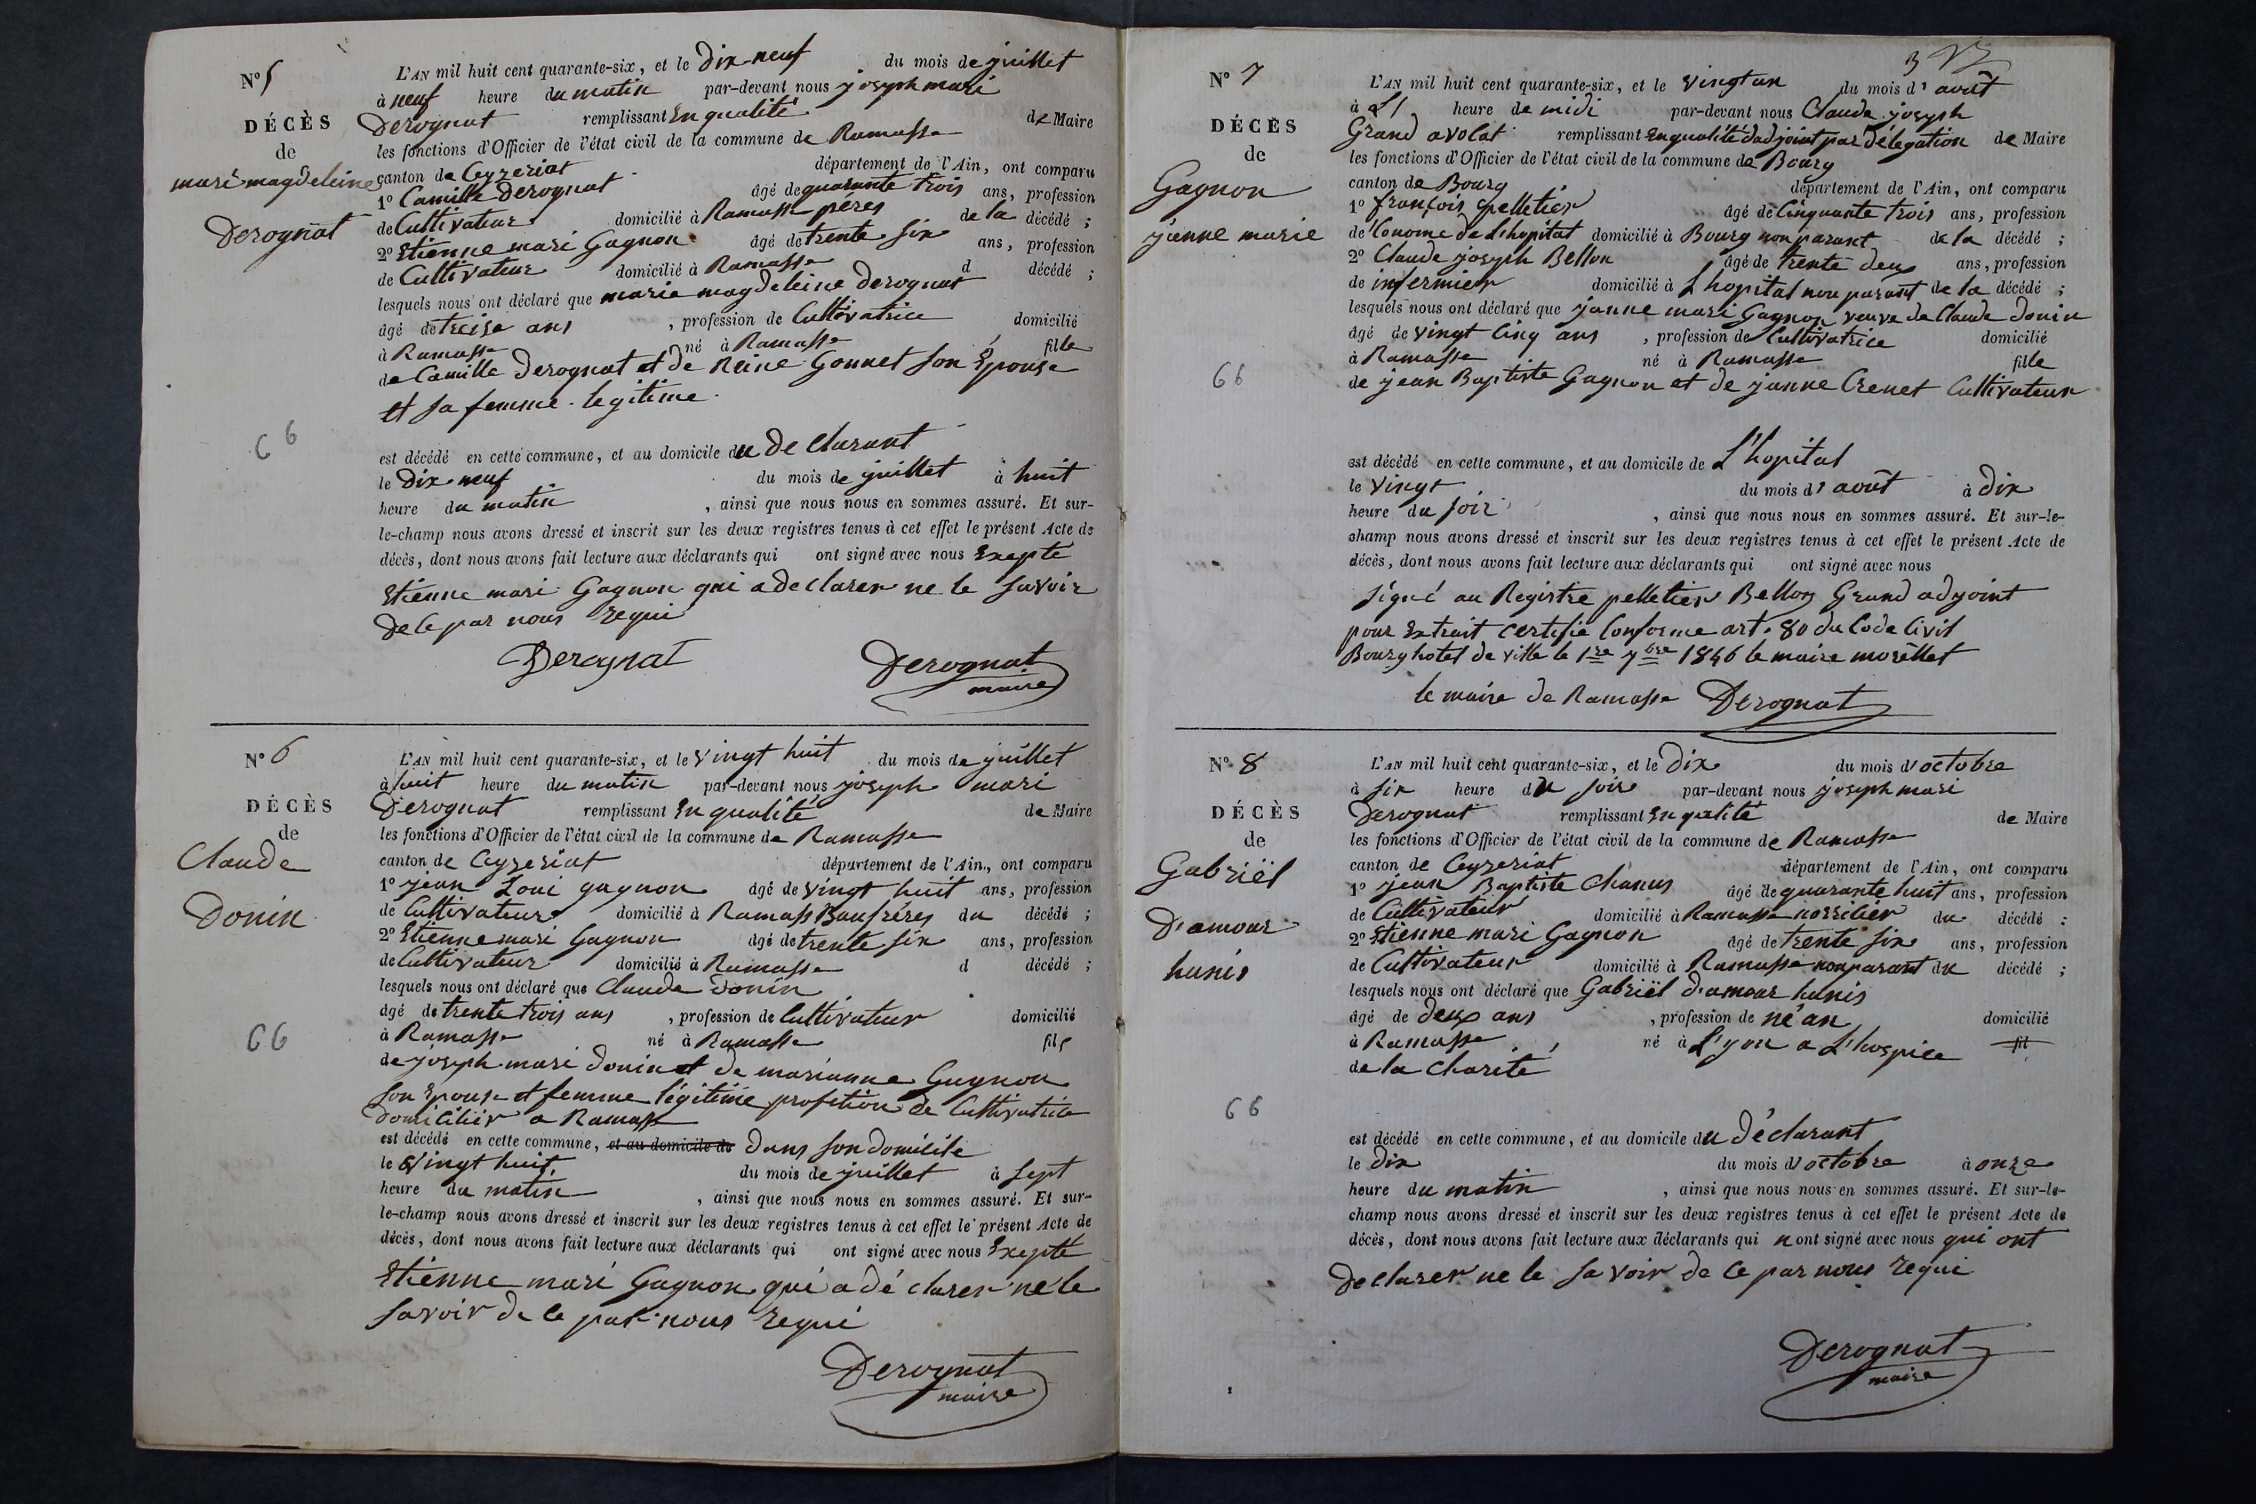 N° 5
DÉCÈS
de
mari magdeleine
Derognat
66
L'AN mil huit cent quarante-six, et le Dix neuf du mois de juillet
à neuf heure du matin par-devant nous joseph mari
Derognat remplissant En qualité de Maire
les fonctions d'Officier de l'état civil de la commune de Ramasse
canton de Ceyzeriat département de l'Ain, ont comparu
1° Camille Derognat âgé de quarante trois ans, profession
de Cultivateur domicilié à Ramasse peres de la décédé ;
2° Etienne mari Gagnon âgé de trente six ans, profession
de Cultivateur domicilié à Ramasse d décédé ;
lesquels nous ont déclaré que marie magdeleine Derognat
âgé de treise ans , profession de Cultivatrice domicilié
à Ramasse né à Ramasse fille
de Camille Derognat et de Reine Gonnet son Epouse
et sa femme legitime
est décédé en cette commune, et au domicile du De clarant
le Dix neuf du mois de juillet à huit
heure du matin , ainsi que nous nous en sommes assuré. Et sur-
le-champ nous avons dressé et inscrit sur les deux registres tenus à cet effet le présent Acte de
décès, dont nous avons fait lecture aux déclarants qui ont signé avec nous Exepté
Etienne mari Gagnon qui a declarer ne le savoir
De ce par nous requi
Derognat Derognat
maire
N° 6
DÉCÈS
de
Claude
Donin
66
L'AN mil huit cent quarante-six, et le vingt huit du mois de juillet
à huit heure du matin par-devant nous joseph mari
Derognat remplissant En qualité de Maire
les fonctions d'Officier de l'état civil de la commune de Ramasse
canton de Ceyzeriat département de l'Ain, ont comparu
1° jean Loui gagnon âgé de vingt huit ans, profession
de Cultivateur domicilié à Ramass Baufréres du décédé ;
2° Etienne mari Gagnon âgé de trente six ans, profession
de Cultivateur domicilié à Ramasse d décédé ;
lesquels nous ont déclaré que Claude Donin
âgé de trente trois ans , profession de Cultivateur domicilié
à Ramasse né à Ramasse fils
de joseph mari Donin et de marianne Gagnon
son Epouse et femme légitime profetion de Cultivatrice
Domicilier a Ramass
est décédé en cette commune, et au domicile de Dans son domicile
le vingt huit du mois de juillet à sept
heure du matin , ainsi que nous nous en sommes assuré. Et sur-
le-champ nous avons dressé et inscrit sur les deux registres tenus à cet effet le présent Acte de
décès, dont nous avons fait lecture aux déclarants qui ont signé avec nous Exepté
Etienne mari Gagnon qui a dé clarer ne le
savoir de ce par nous requi
Derognat
maire
3
N° 7
DÉCÈS
de
Gagnon
jeanne marie
66
L'AN mil huit cent quarante-six, et le vingt un du mois d'août
à heure de midi par-devant nous Claude joseph
Grand avocat remplissant En qualité d'adjoint par délégation de Maire
les fonctions d'Officier de l'état civil de la commune de Bourg
canton de Bourg département de l'Ain, ont comparu
1° françois pelletier âgé de Cinquante trois ans, profession
de Econome de L'hopital domicilié à Bourg non parant de la décédé ;
2° Claude joseph Bellon âgé de trente deux ans, profession
de infermier domicilié à L'hopital non parant de la décédé ;
lesquels nous ont déclaré que janne mari Gagnon veuve de Claude Donin
âgé de vingt Cinq ans , profession de Cultivatrice domicilié
à Ramasse né à Ramasse fille
de jean Baptiste Gagnon et de janne Crenet Cultivateur
est décédé en cette commune, et au domicile de L'hopital
le vingt du mois d'août à Dix
heure du soir , ainsi que nous nous en sommes assuré. Et sur-le-
champ nous avons dressé et inscrit sur les deux registres tenus à cet effet le présent Acte de
décès, dont nous avons fait lecture aux déclarants qui ont signé avec nous
signé au Registre pelletier Bellon Grand adjoint
pour Extrait certifié Conforme art. 80 du Code Civil
Bourg hotel de ville le 1re 7bre 1846 le maire morellet
le maire de Ramasse Derognat
N° 8
DÉCÈS
de
Gabriël
D'amour
hunis
66
L'AN mil huit cent quarante-six, et le Dix du mois d'octobre
à six heure du soir par-devant nous joseph mari
Derognat remplissant En qalité de Maire
les fonctions d'Officier de l'état civil de la commune de Ramasse
canton de Ceyzeriat département de l'Ain, ont comparu
1° jean Baptiste Chanus âgé de quarante huit ans, profession
de Cultivateur domicilié à Ramasse norricier du décédé ;
2° Etienne mari Gagnon âgé de trente six ans, profession
de Cultivateur domicilié à Ramasse non parant du décédé ;
lesquels nous ont déclaré que Gabriël D'amour hunis
âgé de deux ans , profession de né'an domicilié
à Ramasse né à L'yon a L'hospice fil
de la charité
est décédé en cette commune, et au domicile du déclarant
le Dix du mois d'octobre à onze
heure du matin , ainsi que nous nous en sommes assuré. Et sur-le-
champ nous avons dressé et inscrit sur les deux registres tenus à cet effet le présent Acte de
décès, dont nous avons fait lecture aux déclarants qui n ont signé avec nous qui ont
Declarer ne le savoir de ce par nous requi
Derognat
maire